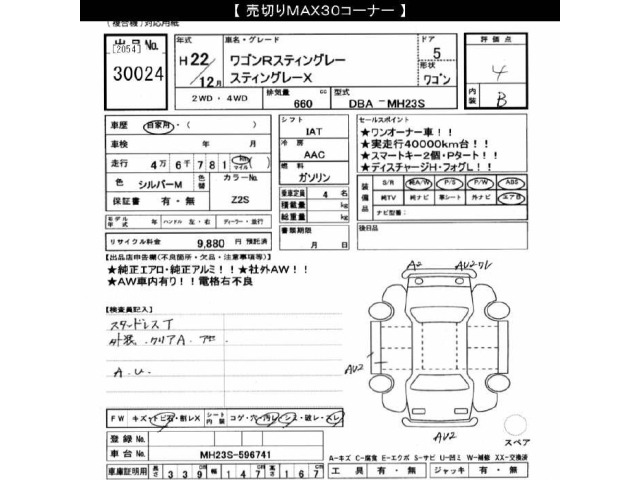 【 売切りMAX30コーナー 】
(複合機)対応用紙
出品No. [2054] 30024
年式 H 22/12月
車名・グレード ワゴンRスティングレー
スティングレーX
ドア 5
形状 ワゴン
評価点 4
内装 B
2WD・4WD
排気量 660 cc
型式 DBA－MH23S
車歴 自家用・( )
車検 年 月
走行 4万6千781 km マイル
色 シルバーM 色替
カラーNo. Z2S
保証書 有・無
モデル年式 年 ハンドル 左・右 ディーラー・並行
リサイクル料金 9,880 円 預託済
シフト IAT
冷房 AAC
燃料 ガソリン
乗車定員 4 名
積載量 kg
総重量 kg
書類期限 月 日
セールスポイント
★ワンオーナー車！！
★実走行40000km台！！
★スマートキー2個・Pタート！！
★ディスチャージH・フォグL！！
装備品 S/R 純A/W P/S P/W ABS
純TV 純ナビ 革シート 外ナビ エアB
ナビ型番:
後日品
【出品店申告欄(不良箇所・欠品・注意事項等)】
★純正エアロ・純正アルミ！！★社外AW！！
★AW車内有り！！電格右不良
【検査員記入】
スタッドレスT
外装 クリアA
A.U
A2 AV2ワレ
AV2
AV2
スペア
FW キズ・トビ石・割レX シート内装 コゲ・穴・汚レ・シミ・破レ・スレ
登録No.
車台No. MH23S-596741
A－キズ C－腐食 E－エクボ S－サビ U－凹ミ W－補修 XX－交換済
車庫証明用 長さ 339 幅 147 高さ 167
工具 有・無 ジャッキ 有・無